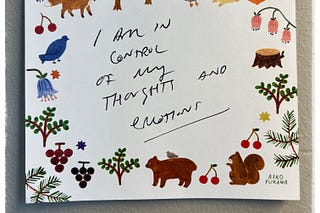 I AM IN
CONTROL
OF MY
THOUGHTS AND
EMOTIONS
AIKO
FUKAWA